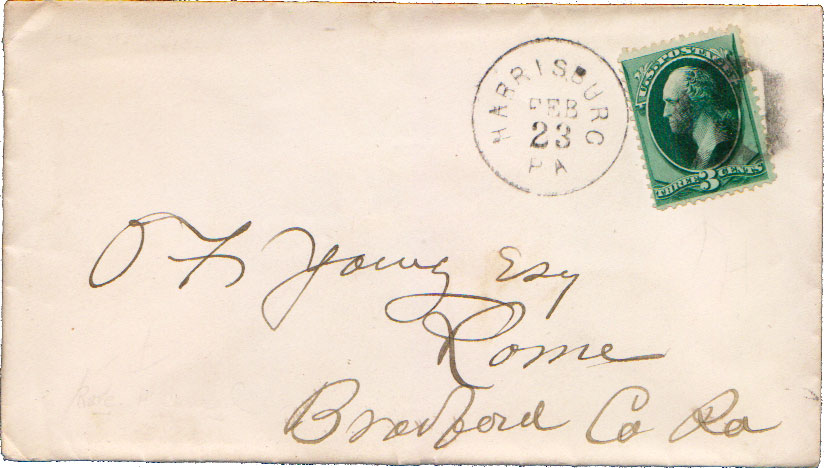 HARRISBURG
FEB
23
PA
U.S. POSTAGE
THREE 3 CENTS
O F Young Esq
Rome
Bradford Co Pa